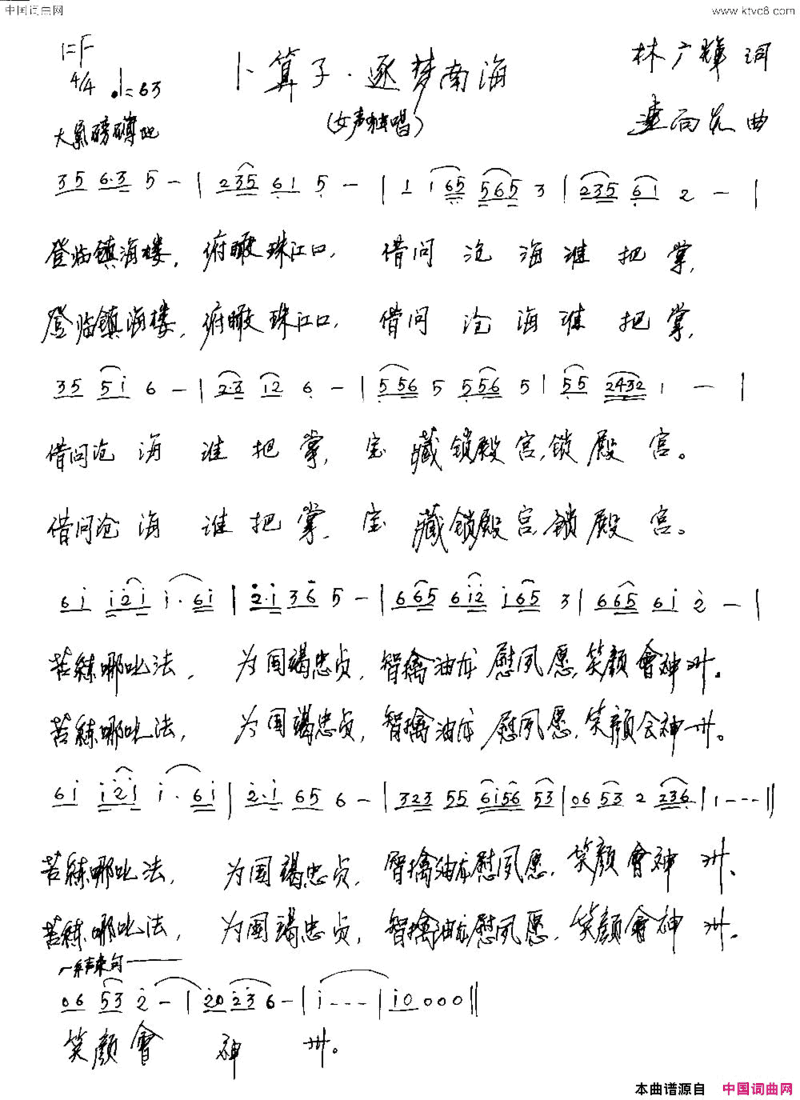 中国词曲网
www.ktvc8.com
1=F
4/4 ♩=63
卜算子·逐梦南海
林广辉 词
(女声独唱)
曲
大气磅礴地
35 6·3 5 - | 235 61 5 - | 1 165 565 3 | 235 61 2 - |
登临镇海楼，俯瞰珠江口，借问沧海谁把掌，
登临镇海楼，俯瞰珠江口，借问沧海谁把掌，
35 51 6 - | 2·3 12 6 - | 556 5 556 5 | 55 2432 1 - |
借问沧海谁把掌，宝藏锁殿宫，锁殿宫。
借问沧海谁把掌，宝藏锁殿宫，锁殿宫。
61 121 1·61 | 2·1 36 5 - | 665 612 165 3 | 665 61 2 - |
苦练哪吒法，为国竭忠贞，智擒油龙慰夙愿，笑颜會神州。
苦练哪吒法，为国竭忠贞，智擒油龙慰夙愿，笑颜会神州。
61 121 1·61 | 2·1 65 6 - | 323 55 6156 53 | 06 53 2 236 | 1 - - - ||
苦练哪吒法，为国竭忠贞，智擒油龙慰夙愿，笑颜會神州、
苦练哪吒法，为国竭忠贞，智擒油龙慰夙愿，笑颜會神州、
结束句
06 53 2 - | 20 236 - | 1 - - - | 10 0 0 0 ||
笑颜會神州。
本曲谱源自 中国词曲网